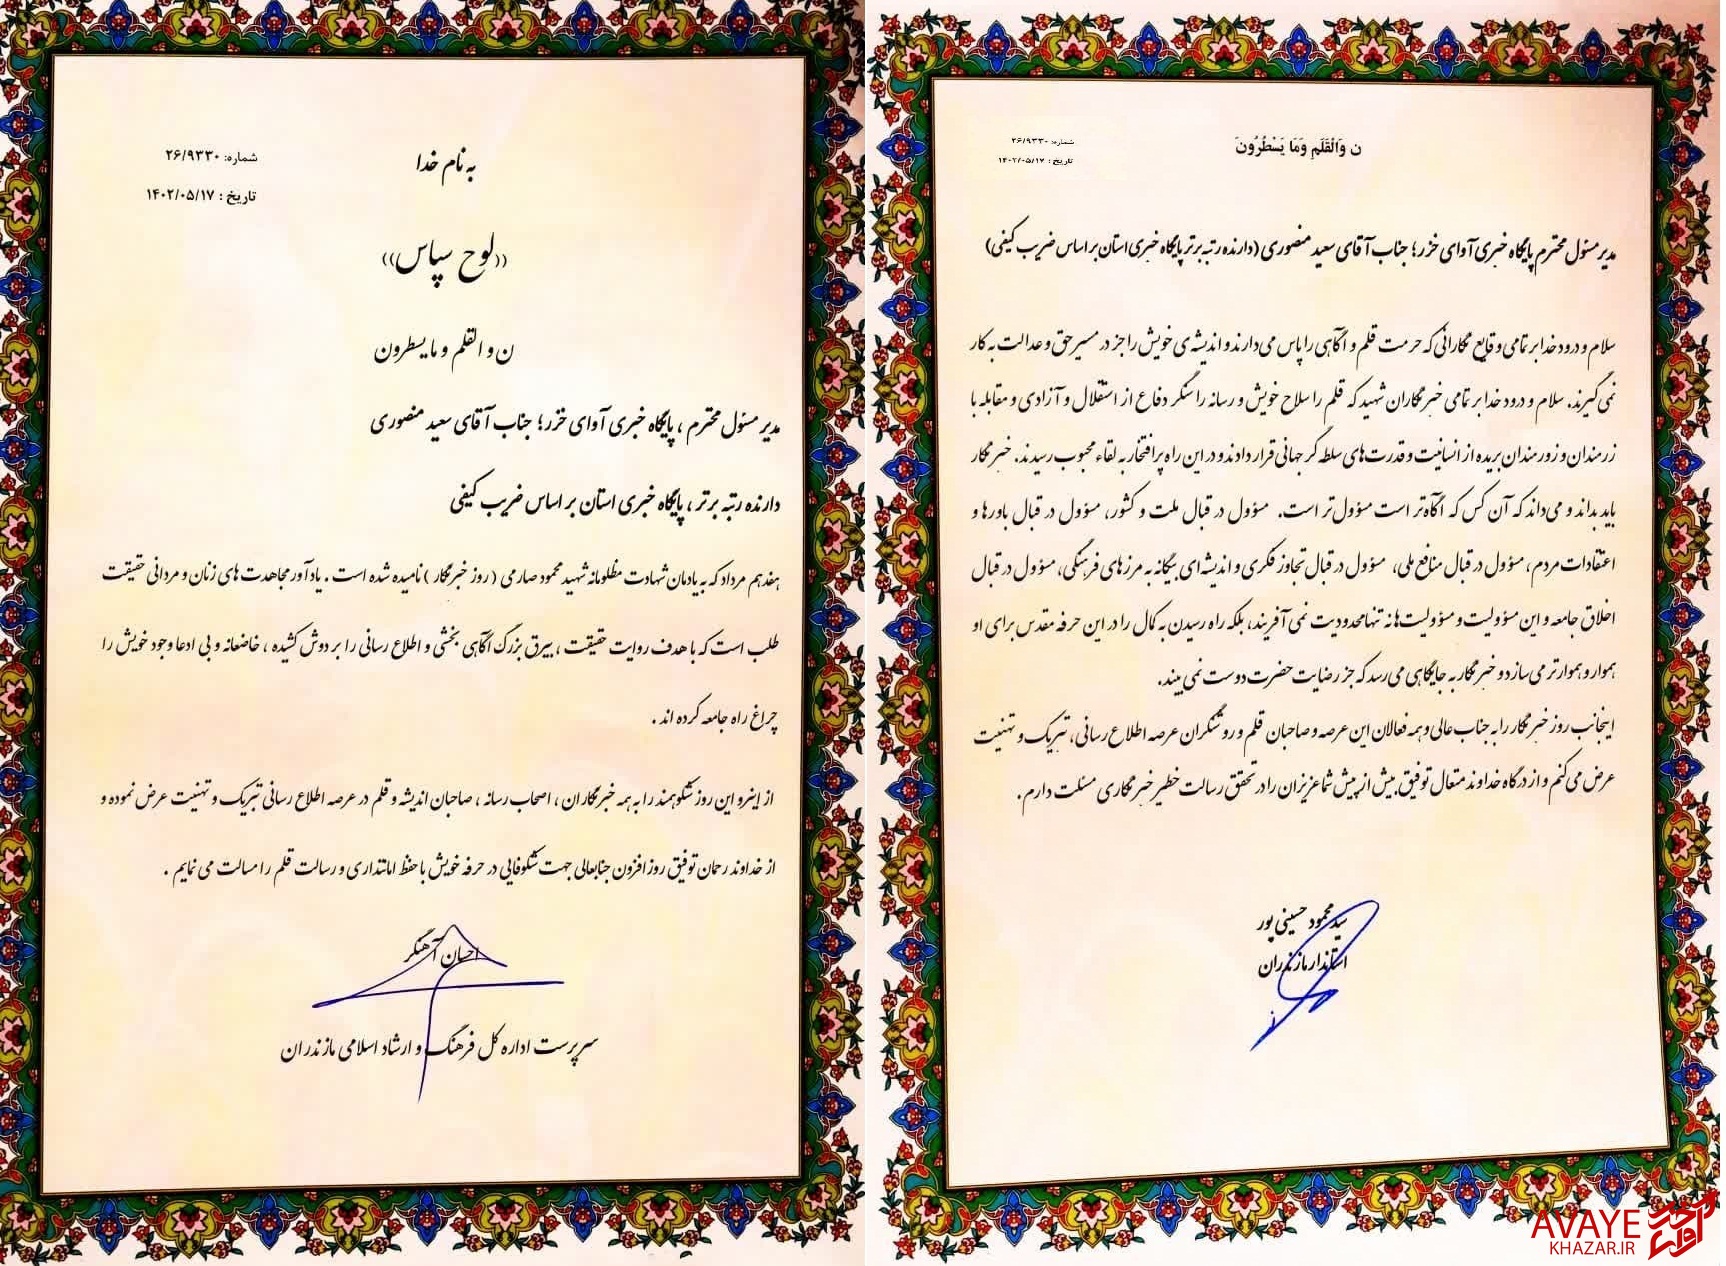 به نام خدا
شماره: ۲۶/۹۳۳۰
تاریخ : ۱۴۰۲/۰۵/۱۷
((لوح سپاس))
ن و القلم و ما یسطرون
مدیر مسئول محترم ، پایگاه خبری آوای خزر؛ جناب آقای سعید منصوری
دارنده رتبه برتر ، پایگاه خبری استان بر اساس ضریب کیفی
هفدهم مرداد که به یادمان شهادت مظلومانه شهید محمود صارمی ( روز خبرنگار ) نامیده شده است . یادآور مجاهدت های زنان و مردانی حقیقت
طلب است که با هدف روایت حقیقت ، بیرق بزرگ آگاهی بخشی و اطلاع رسانی را بر دوش کشیده ، خاضعانه و بی ادعا وجود خویش را
چراغ راه جامعه کرده اند .
از اینرو این روز شکوهمند را به همه خبرنگاران ، اصحاب رسانه ، صاحبان اندیشه و قلم در عرصه اطلاع رسانی تبریک و تهنیت عرض نموده و
از خداوند رحمان توفیق روزافزون جنابعالی جهت شکوفایی در حرفه خویش با حفظ امانتداری و رسالت قلم را مسالت می نمایم .
احسان آهنگر
سرپرست اداره کل فرهنگ و ارشاد اسلامی مازندران
ن وَالْقَلَمِ وَمَا يَسْطُرُونَ
شماره: ۲۶/۹۳۳۰
تاریخ : ۱۴۰۲/۰۵/۱۷
مدیر مسئول محترم پایگاه خبری آوای خزر؛ جناب آقای سعید منصوری (دارنده رتبه برتر پایگاه خبری استان بر اساس ضریب کیفی)
سلام و درود خدا بر تمامی وقایع نگارانی که حرمت قلم و آگاهی را پاس می دارند و اندیشه ی خویش را جز در مسیر حق و عدالت به کار
نمی گیرند. سلام و درود خدا بر تمامی خبرنگاران شهید که قلم را سلاح خویش و رسانه را سنگر دفاع از استقلال و آزادی و مقابله با
زرمندان و زورمندان بریده از انسانیت و قدرت های سلطه گر جهانی قرار دادند و در این راه پرافتخار به لقاء محبوب رسیدند. خبرنگار
باید بداند و می داند که آن کس که آگاه تر است مسؤول تر است. مسؤول در قبال ملت و کشور، مسؤول در قبال باورها و
اعتقادات مردم، مسؤول در قبال منافع ملی، مسؤول در قبال تجاوز فکری و اندیشه ای بیگانه به مرزهای فرهنگی، مسؤول در قبال
اخلاق جامعه و این مسؤولیت و مسؤولیت ها نه تنها محدودیت نمی آفریند، بلکه راه رسیدن به کمال را در این حرفه مقدس برای او
هموار و هموارتر می سازد و خبرنگار به جایگاهی می رسد که جز رضایت حضرت دوست نمی بیند.
اینجانب روز خبرنگار را به جناب عالی و همه فعالان این عرصه و صاحبان قلم و روشنگران عرصه اطلاع رسانی، تبریک و تهنیت
عرض می کنم و از درگاه خداوند متعال توفیق بیش از پیش شما عزیزان را در تحقق رسالت خطیر خبرنگاری مسئلت دارم.
سید محمود حسینی پور
استاندار مازندران
AVAYE
KHAZAR.IR
آوای خزر